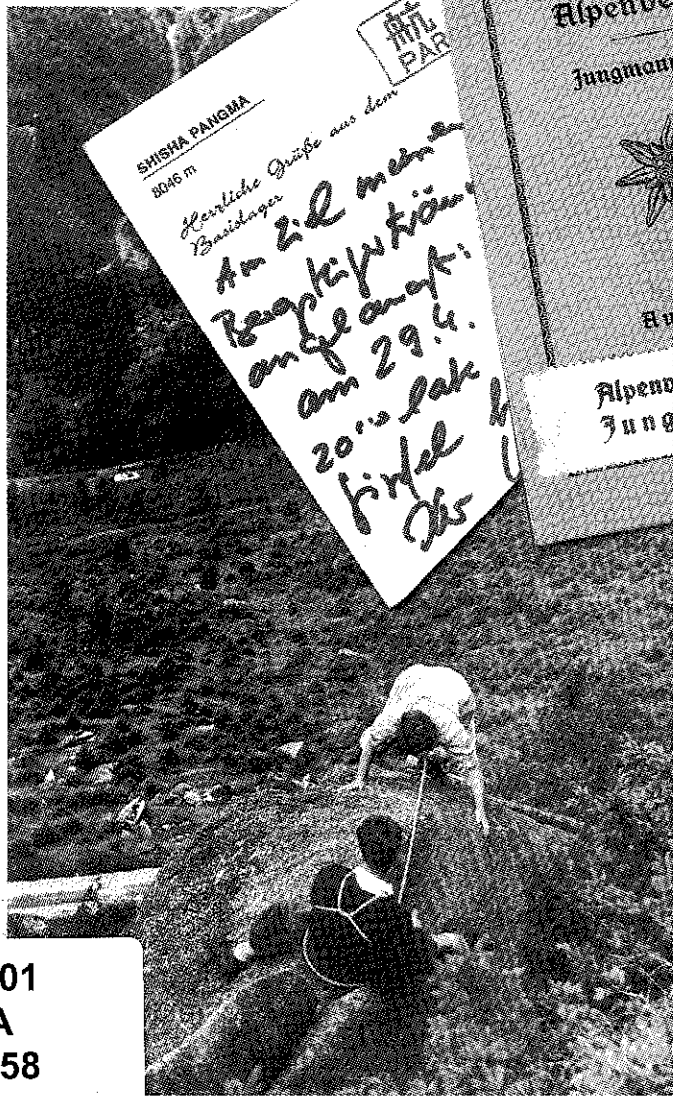 SHISHA PANGMA
8046 m
Herzliche Grüße aus dem
Basislager
Am Ziel meiner
angelangt:
am 29.4.
航
PAR
Alpenve
Jungmann
Au
Alpenv
Jung
01
A
58